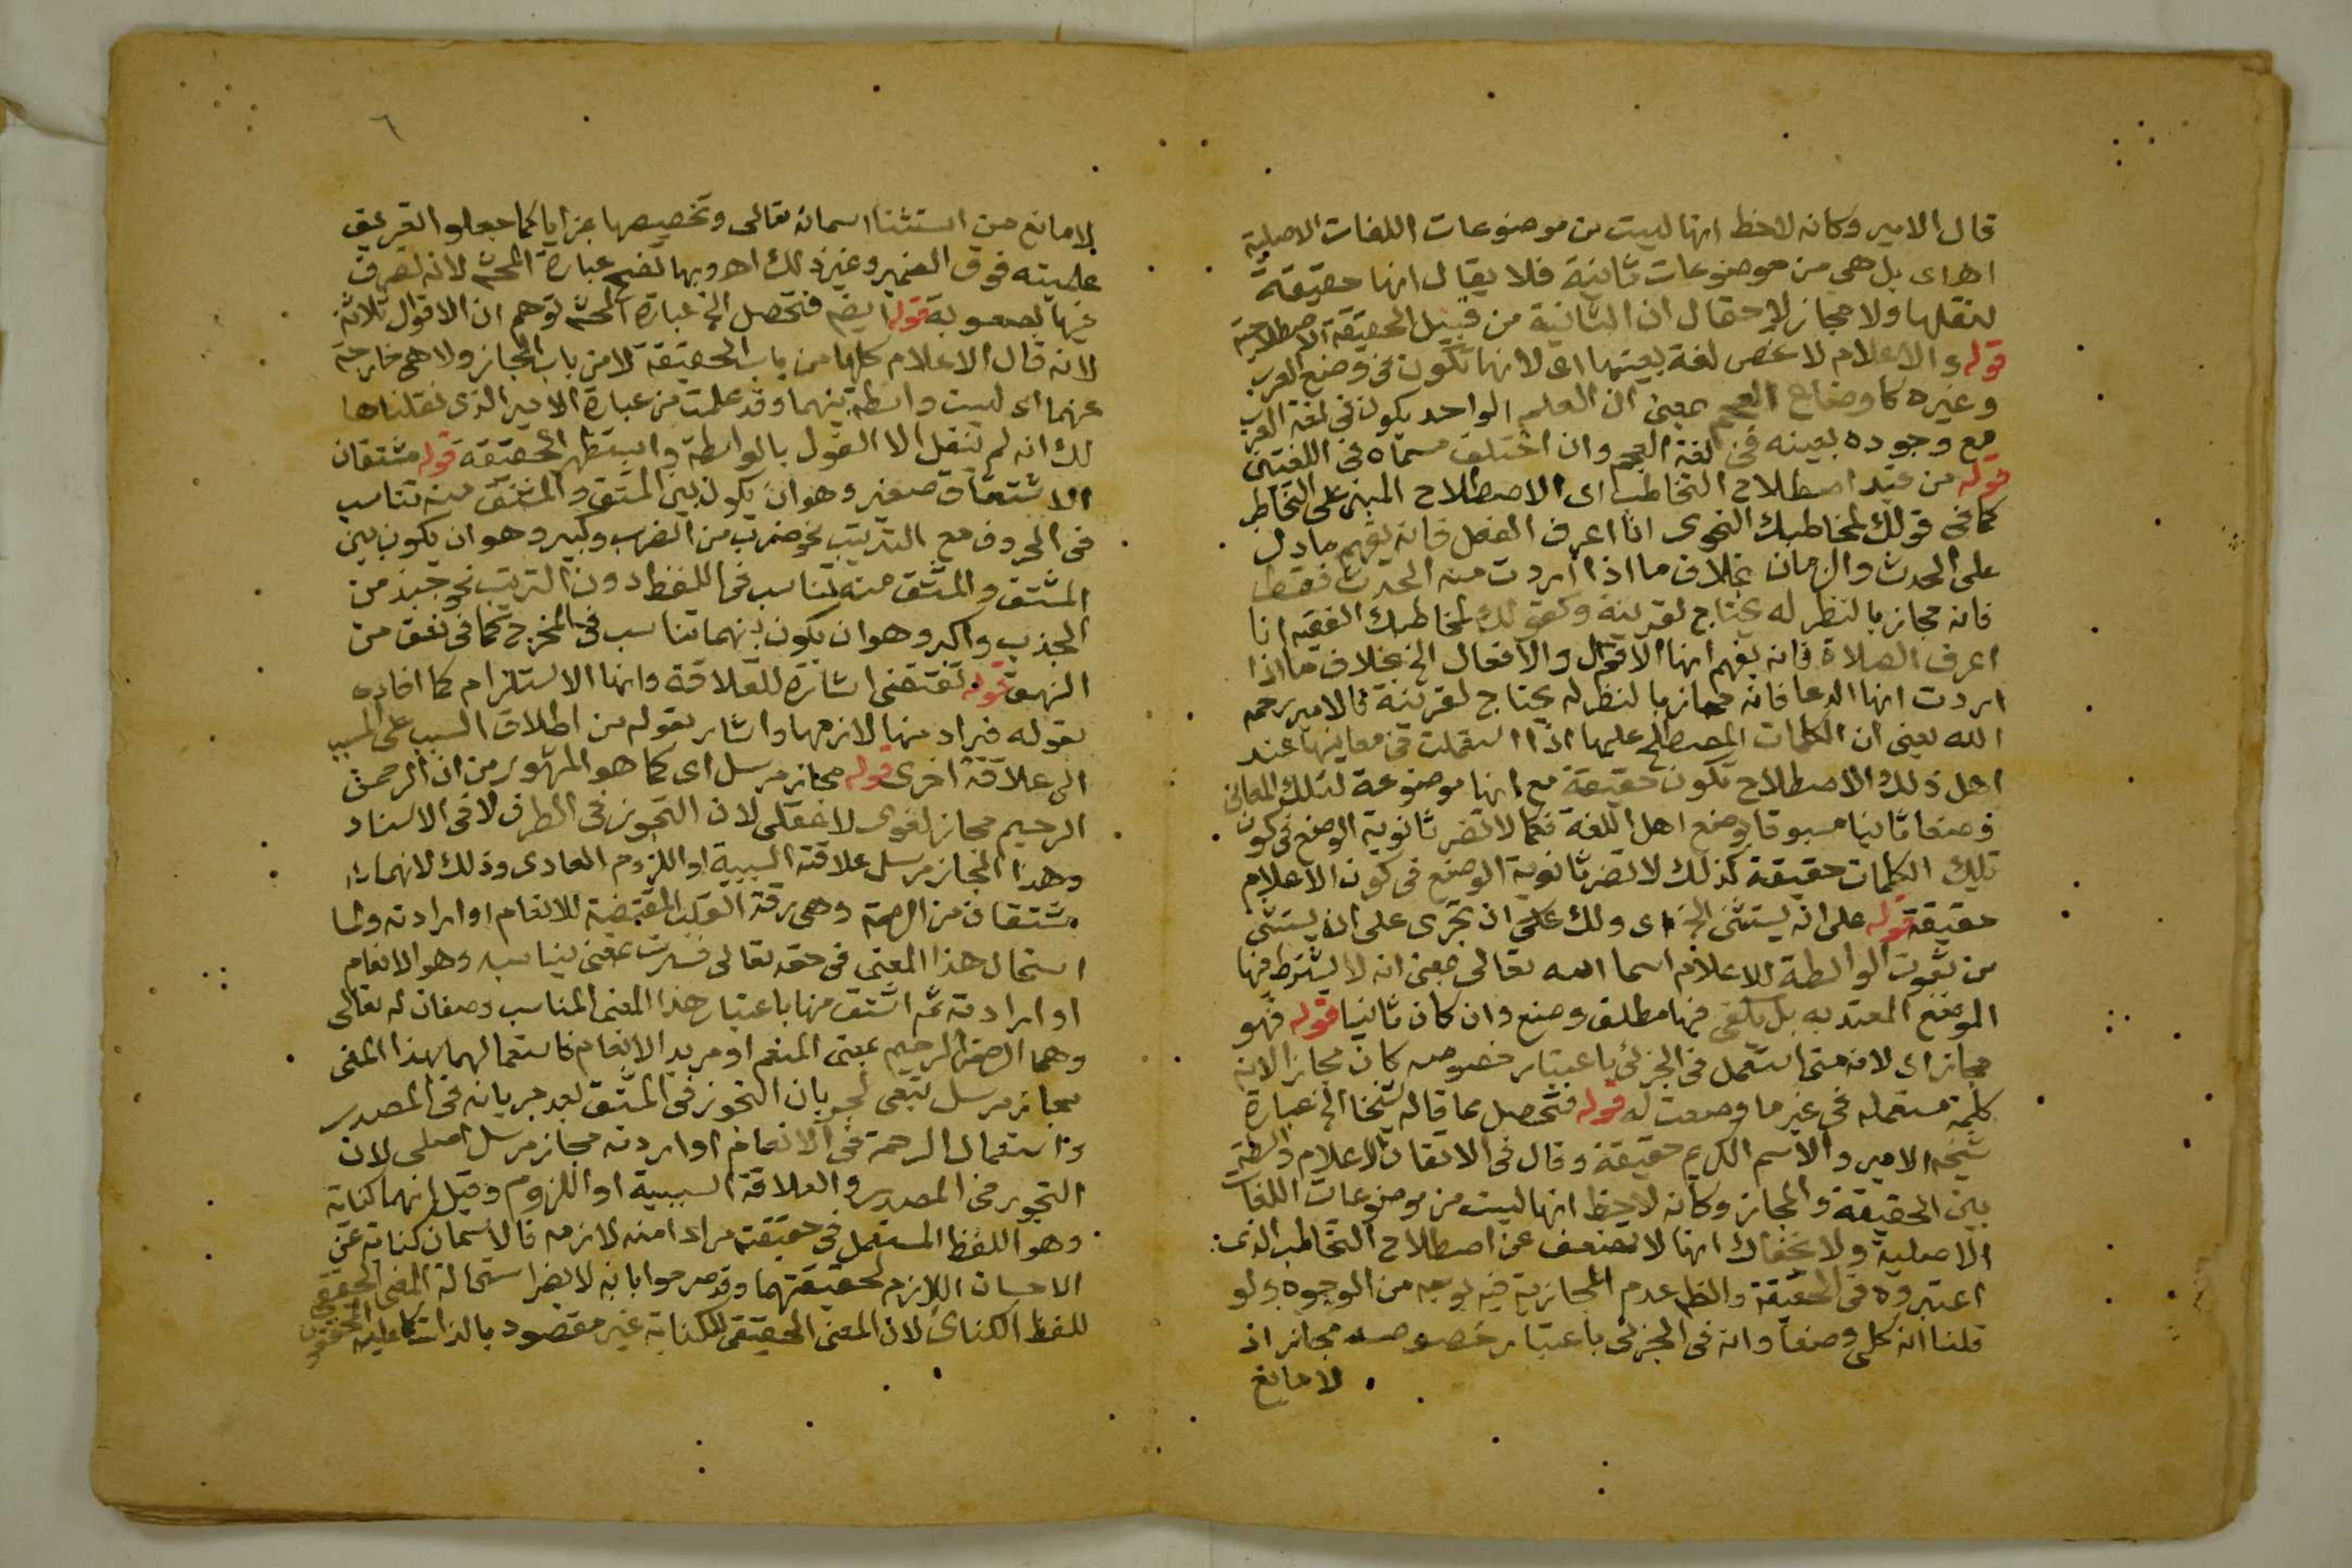 قال الامير وكانه لاحظ انها ليست من موضوعات اللغات الاصلية
اه اى بل هى من موضوعات ثانية فلا يقال انها حقيقة
لنقلها ولا مجاز لاحتمال ان الثانية من قبيل الحقيقة الاصطلاحية
قوله والاعلام لا تخص لغة بعينها اى لانها تكون فى وضع العرب
وغيره كاوضاع العجم بمعنى ان العلم الواحد يكون فى لغة العرب
مع وجوده بعينه فى لغة العجم وان اختلف مسماه فى اللغتين
قوله من عند اصطلاح التخاطب اى الاصطلاح المبنى على التخاطر
كما فى قولك لمخاطبك النحوى انا اعرف الفعل فانه يفهم ما دل
على الحدث والزمان بخلاف ما اذا اردت منه الحدث فقط
فانه مجاز بالنظر له يحتاج لقرينة وكقولك لمخاطبك الفقيه انا
اعرف الصلاة فانه يفهم انها الاقوال والافعال الخ بخلاف ما اذا
اردت انها الدعا فانه مجاز بالنظر له يحتاج لقرينة قال الامير رحمه
الله يعنى ان الكلمات المصطلح عليها اذا استعملت فى معانيها عند
اهل ذلك الاصطلاح تكون حقيقة مع انها موضوعة لتلك المعانى
وضعا ثانيا مسبوقا بوضع اهل اللغة فكما لا تضر ثانوية الوضع فى كون
تلك الكلمات حقيقة كذلك لا تضر ثانوية الوضع فى كون الاعلام
حقيقة قوله على انه يستثنى الخ اى ولك على ان تجرى على ان يستثنى
من ثبوت الواسطة للاعلام اسما الله تعالى بمعنى انه لا يشترط فيها
الوضع المعتد به بل يكفى فيها مطلق وضع وان كان ثانيا قوله فهو
مجاز اى لانه متى استعمل فى الجزئى باعتبار خصوصه كان مجازا لانه
كلمة مستعملة فى غير ما وضعت له قوله فتحصل مما قاله شيخنا الخ عبارة
شيخه الامير والاسم الكريم حقيقة وقال فى الاتقان الاعلام واسطة
بين الحقيقة والمجاز وكانه لاحظ انها ليست من موضوعات اللغات
الاصلية ولا يخفاك انها لا تضعف عن اصطلاح التخاطب الذى
اعتبروه فى الحقيقة والظ عدم المجازية فيه بوجه من الوجوه ولو
قلنا انه كلى وضعا وانه فى الجزئى باعتبار خصوصه مجاز اذ
لا مانع
٦
لا مانع من استثنا اسمائه تعالى وتخصيصها بمزايا كما جعلوا التعريف
علميته فوق الضمير وغير ذلك اهـ وبها تضح عبارة المحشى لانه تصرف
فيها بصعوبة قوله ايضه فتحصل الخ عبارة المحشى توهم ان الاقوال ثلاثة
لانه قال الاعلام كلها من باب الحقيقة لا من باب المجاز ولا هى خارجة
عنهما اى ليست واسطة بينهما وقد علمت من عبارة الامير الذى نقلناها
لك انه لم ينقل الا القول بالواسطة واستظهر الحقيقة قوله مشتقان
الاشتقاق صغير وهو ان يكون بين المشتق والمشتق منه تناسب
فى الحروف مع الترتيب نحو ضرب من الضرب وكبير وهو ان يكون بين
المشتق والمشتق منه تناسب فى اللفظ دون الترتيب نحو جبذ من
الجذب واكبر وهو ان يكون بينهما تناسب فى المخرج كما فى نعق من
النهق قوله تقتضى اشارة للعلاقة وانها الاستلزام كما افاده
بقوله فيراد منها لازمها واشار بقوله من اطلاق السبب على المسبب
الى علاقة اخرى قوله مجاز مرسل اى كما هو المشهور من ان الرحمن
الرحيم مجاز لغوى لا عقلى لان التجوز فى الطرف لا فى الاسناد
وهذا المجاز مرسل علاقته السببية او اللزوم العادى وذلك لانهما
مشتقان من الرحمة وهى رقة القلب المقتضية للانعام او ارادته ولما
استحال هذا المعنى فى حقه تعالى فسرت بمعنى يناسبه وهو الانعام
او ارادته ثم اشتق منها باعتبار هذا المعنى المناسب وصفان له تعالى
وهما الرحمن الرحيم بمعنى المنعم او مريد الانعام فاستعمالهما بهذا المعنى
مجاز مرسل تبعى لجريان التجوز فى المشتق بعد جريانه فى المصدر
واستعمال الرحمة فى الانعام او ارادته مجاز مرسل اصلى لان
التجوز فى المصدر والعلاقة السببية او اللزوم وقيل انهما كناية
وهو اللفظ المستعمل فى حقيقته مرادا منه لازمه فالاسمان كناية عن
الاحسان اللازم لحقيقتهما وقد صرحوا بانه لا يضر استحالة المعنى الحقيقى
للفظ الكنائى لان المعنى الحقيقى للكناية غير مقصود بالذات كما عليه المحققون